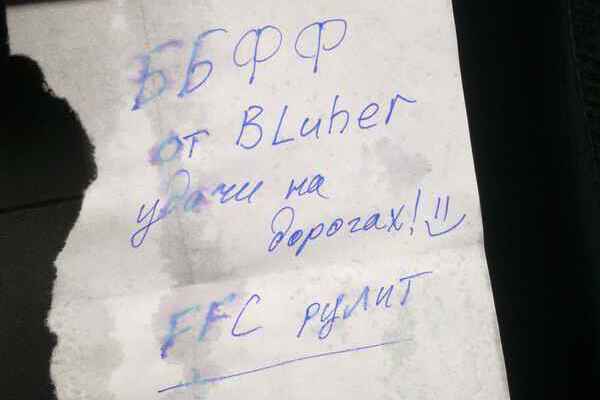 ББФФ
от BLuher
удачи на
дорогах!
FFC рулит